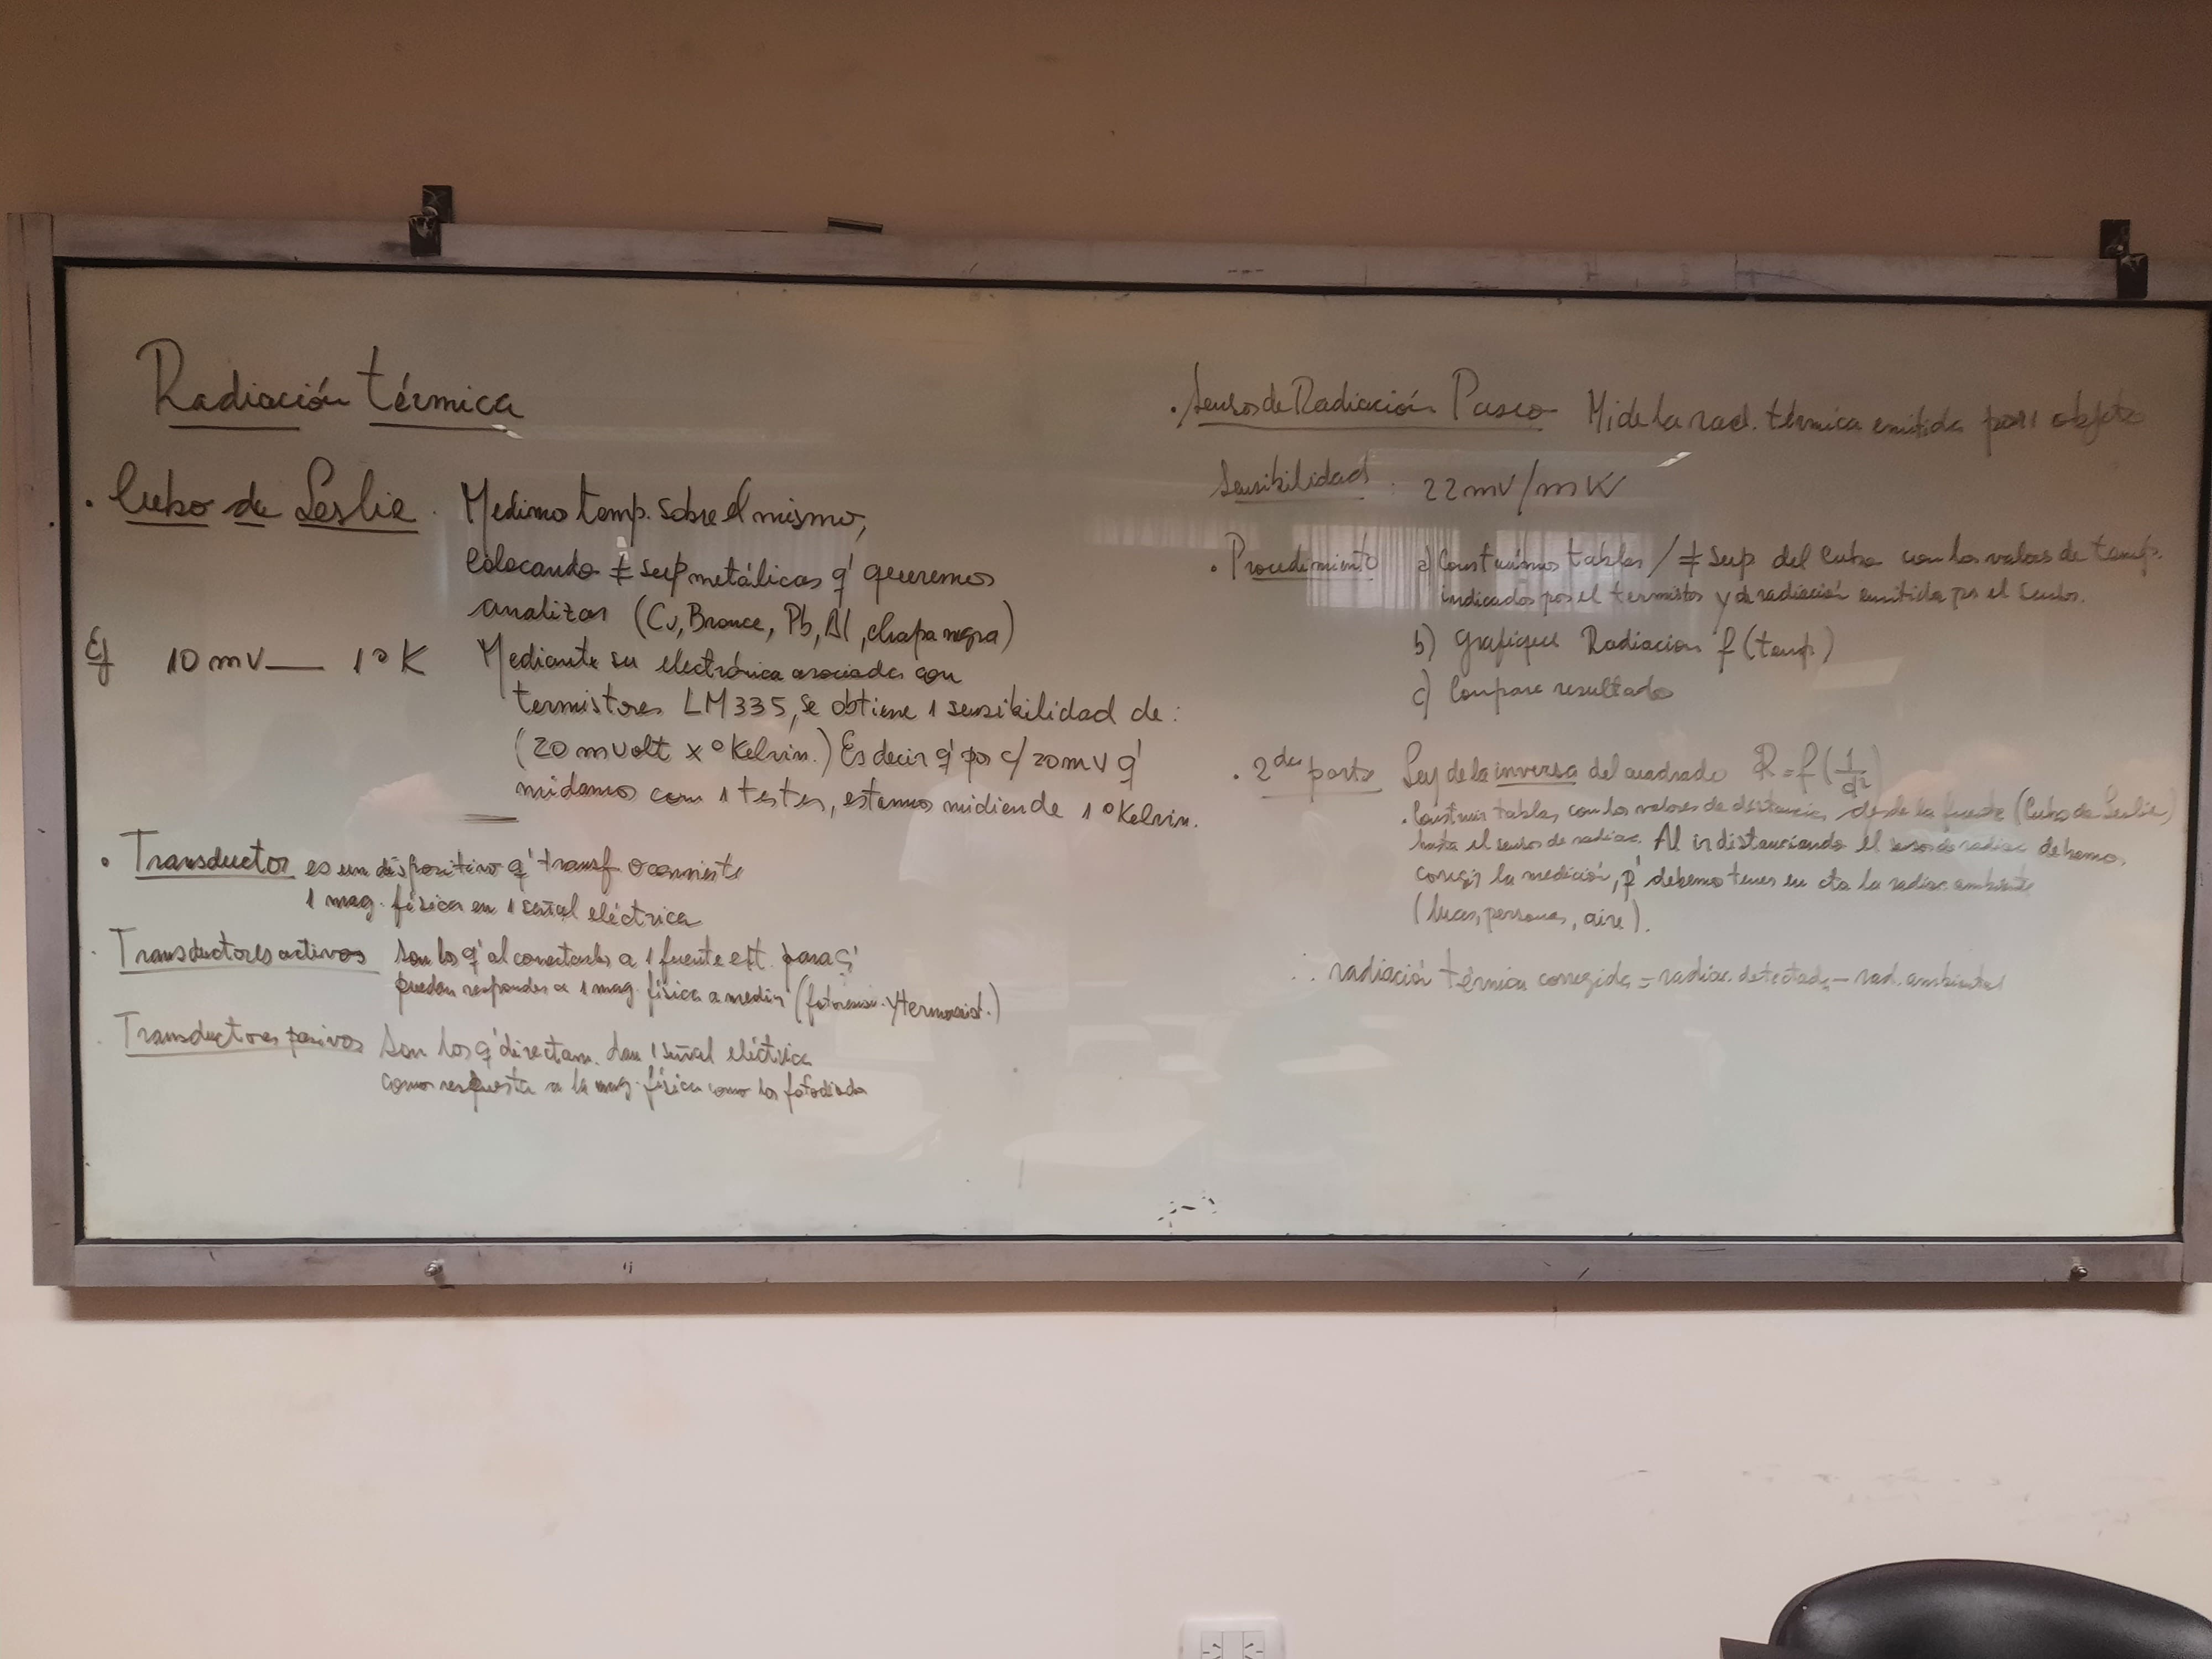 Radiación térmica
· Cubo de Leslie. Medimo temp. sobre el mismo,
colocando ≠ sup metálicas q' queremos
analizar (Cu, Bronce, Pb, Al, chapa negra)
Ej 10 mV — 1°K
Mediante su electrónica asociada con
termistores LM335, se obtiene 1 sensibilidad de:
(20 mvolt x °Kelvin.) Es decir q' por c/ 20 mV q'
midamos con 1 tester, estamos midiende 1 °Kelvin.
· Transductor es un dispositivo q' transf o convierte
1 mag. física en 1 señal eléctrica
· Transductores activos son los q' al conectarlos a 1 fuente ext. para q'
puedan responder a 1 mag. física a medir (fotoresis. y termorist.)
· Transductores pasivos son los q' directam. dan 1 señal eléctrica
como respuesta a la mag. física como los fotodiodos
· Sensor de Radiación Pasco Mide la rad. térmica emitida por 1 objeto
Sensibilidad: 22 mV/mK
· Procedimiento a) Construimos tablas / ≠ sup. del cubo con los valores de temp.
indicados por el termistor y de radiación emitida por el sensor.
b) Grafique Radiación f (temp.)
c) Compare resultado
· 2da parte Ley de la inversa del cuadrado R = f (1/d²)
· Construir tablas con los valores de distancias desde la fuente (Cubo de Leslie)
hasta el sensor de radiac. Al ir distanciando el sensor de radiac debemos
corregir la medición, p' debemo tener en cta la radiac ambiente
(luces, personas, aire).
∴ radiación térmica corregida = radiac. detectada – rad. ambiental